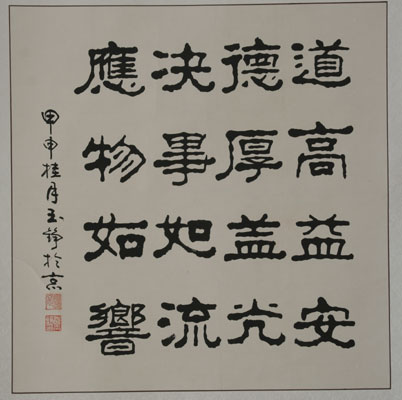 道高益安
德厚盖光
決事如流
應物如響
甲申桂月玉錚於京